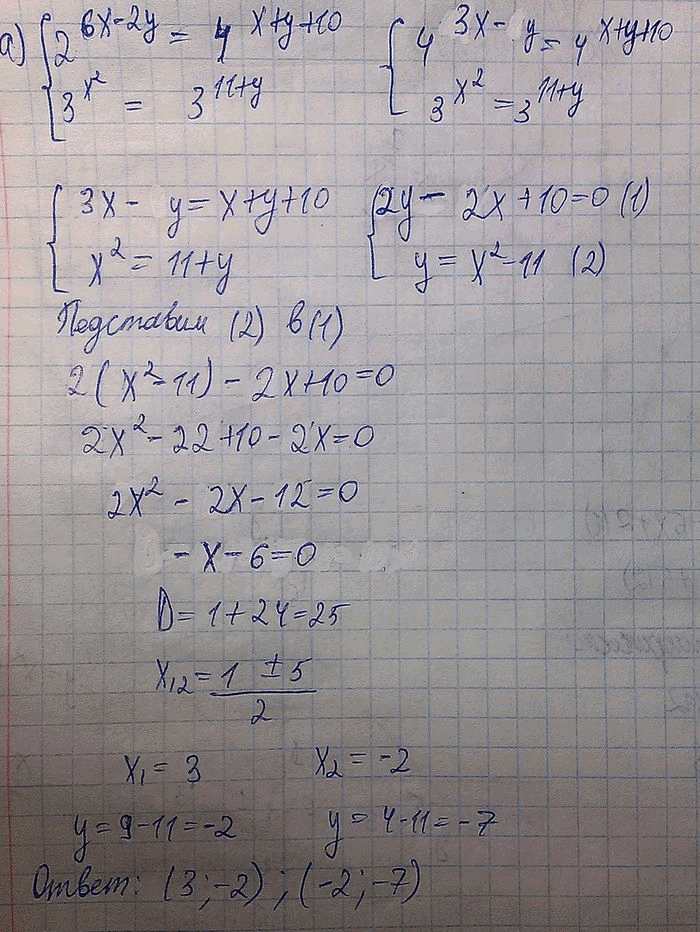 а) { 2^(6x-2y) = 4^(x+y+10) { 4^(3x- y) = 4^(x+y+10)
3^(x²) = 3^(11+y) 3^(x²) = 3^(11+y)
{ 3x - y = x+y+10 { 2y - 2x + 10 = 0 (1)
x² = 11+y y = x² - 11 (2)
Подставим (2) в (1)
2(x² - 11) - 2x + 10 = 0
2x² - 22 + 10 - 2x = 0
2x² - 2x - 12 = 0
- x - 6 = 0
D = 1 + 24 = 25
x₁,₂ = (1 ± 5)/2
x₁ = 3 x₂ = -2
y = 9 - 11 = -2 y = 4 - 11 = -7
Ответ: (3; -2) ; (-2; -7)